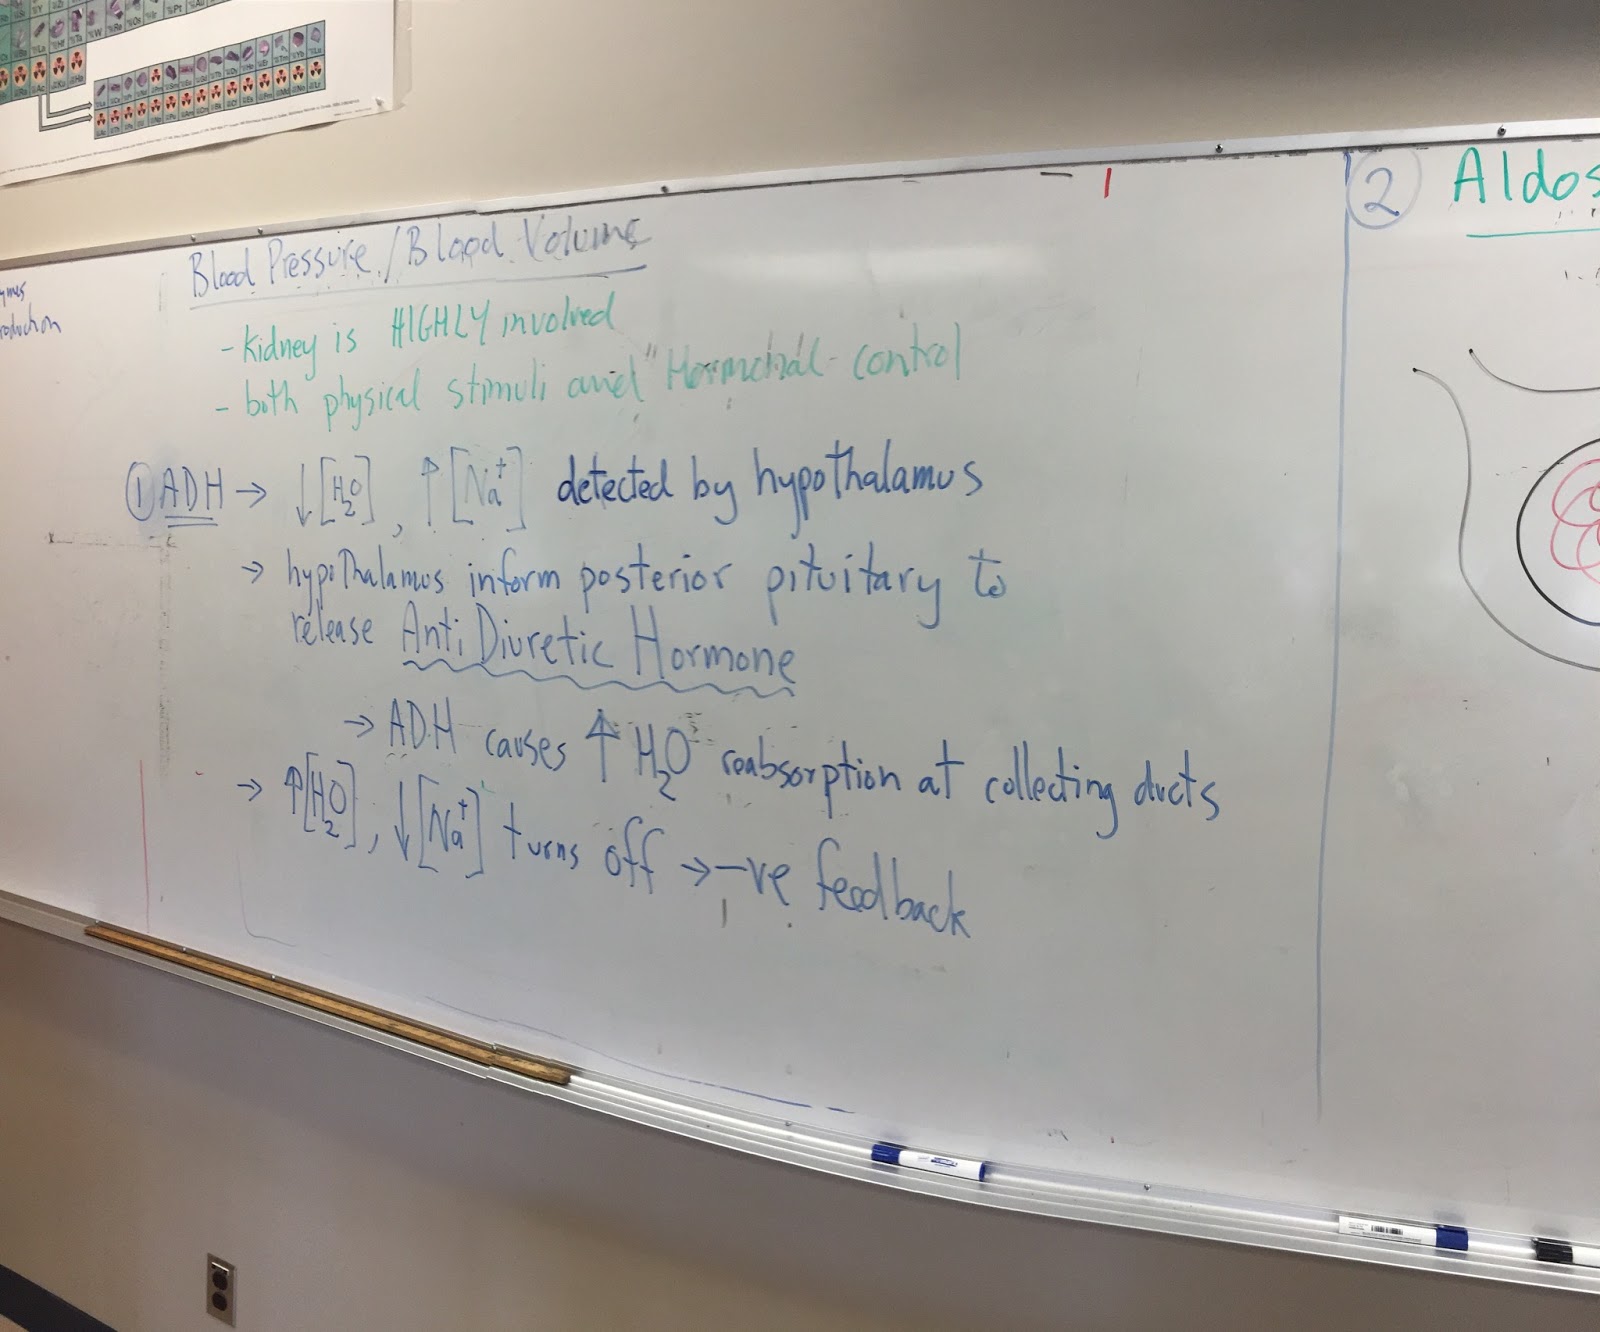 Blood Pressure / Blood Volume
- kidney is HIGHLY involved
- both physical stimuli and "Hormonal control
① ADH → ↓[H2O], ↑[Na+] detected by hypothalamus
→ hypothalamus inform posterior pituitary to
release Anti Diuretic Hormone
→ ADH causes ↑ H2O reabsorption at collecting ducts
→ ↑[H2O], ↓[Na+] turns off → -ve feedback
② Aldos
ymus
roduction